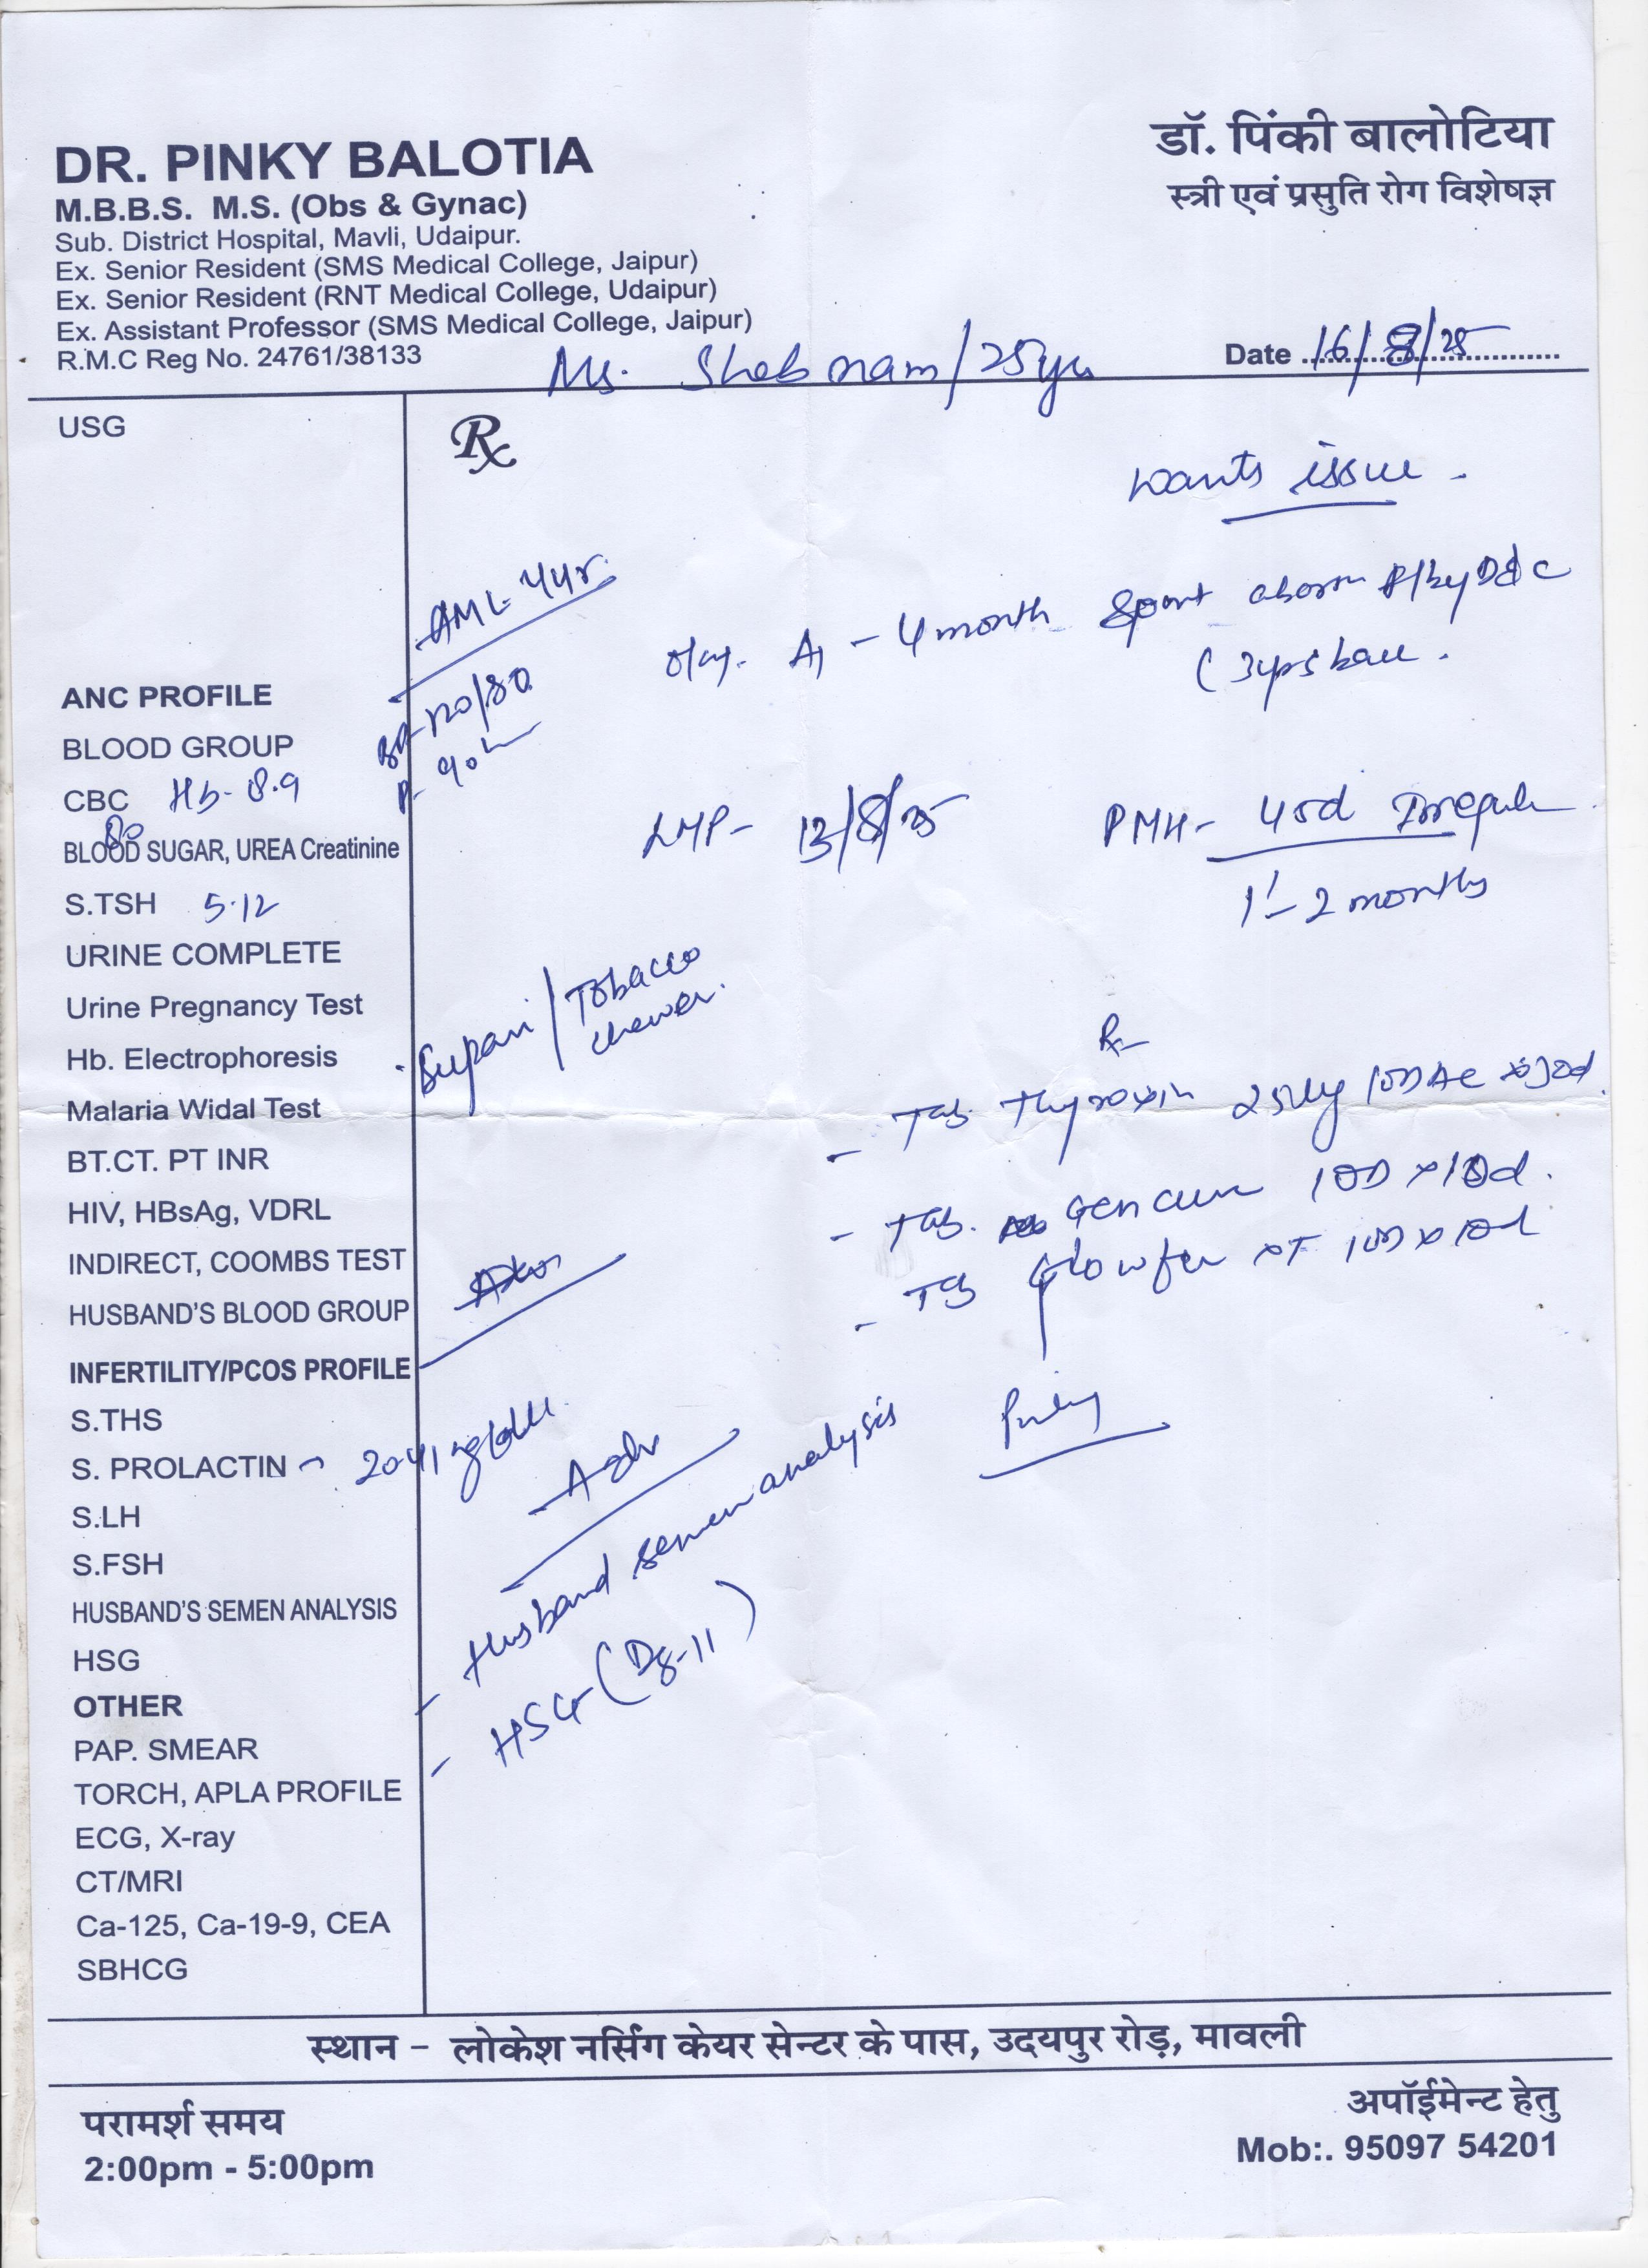 DR. PINKY BALOTIA
M.B.B.S. M.S. (Obs & Gynac)
Sub. District Hospital, Mavli, Udaipur.
Ex. Senior Resident (SMS Medical College, Jaipur)
Ex. Senior Resident (RNT Medical College, Udaipur)
Ex. Assistant Professor (SMS Medical College, Jaipur)
R.M.C Reg No. 24761/38133
डॉ. पिंकी बालोटिया
स्त्री एवं प्रसुति रोग विशेषज्ञ
Date 16/8/25
Ms. Shabnam/25yr
USG
ANC PROFILE
BLOOD GROUP
CBC Hb- 8.9
BLOOD SUGAR, UREA Creatinine
S.TSH 5.12
URINE COMPLETE
Urine Pregnancy Test
Hb. Electrophoresis
Malaria Widal Test
BT.CT. PT INR
HIV, HBsAg, VDRL
INDIRECT, COOMBS TEST
HUSBAND'S BLOOD GROUP
INFERTILITY/PCOS PROFILE
S.THS
S. PROLACTIN
S.LH
S.FSH
HUSBAND'S SEMEN ANALYSIS
HSG
OTHER
PAP. SMEAR
TORCH, APLA PROFILE
ECG, X-ray
CT/MRI
Ca-125, Ca-19-9, CEA
SBHCG
Rx
wants issue.
AML- 4yr
BP- 120/80
P- 90
A1 - 4 month Spont
LMP- 13/8/25
PMH- 4-5d Irregular
1-2 months
Supari/Tobacco
chewer.
Rx
- Tab. Thyroxin 25µg 1OD AC x30d.
- Tab. Gencure 1OD x 10d.
- Tab Glowfer XT 1OD x 10d
Adv
- Husband semen analysis
- HSG (D8-11)
Pinky
स्थान - लोकेश नर्सिंग केयर सेन्टर के पास, उदयपुर रोड़, मावली
परामर्श समय
2:00pm - 5:00pm
अपॉईमेन्ट हेतु
Mob:. 95097 54201